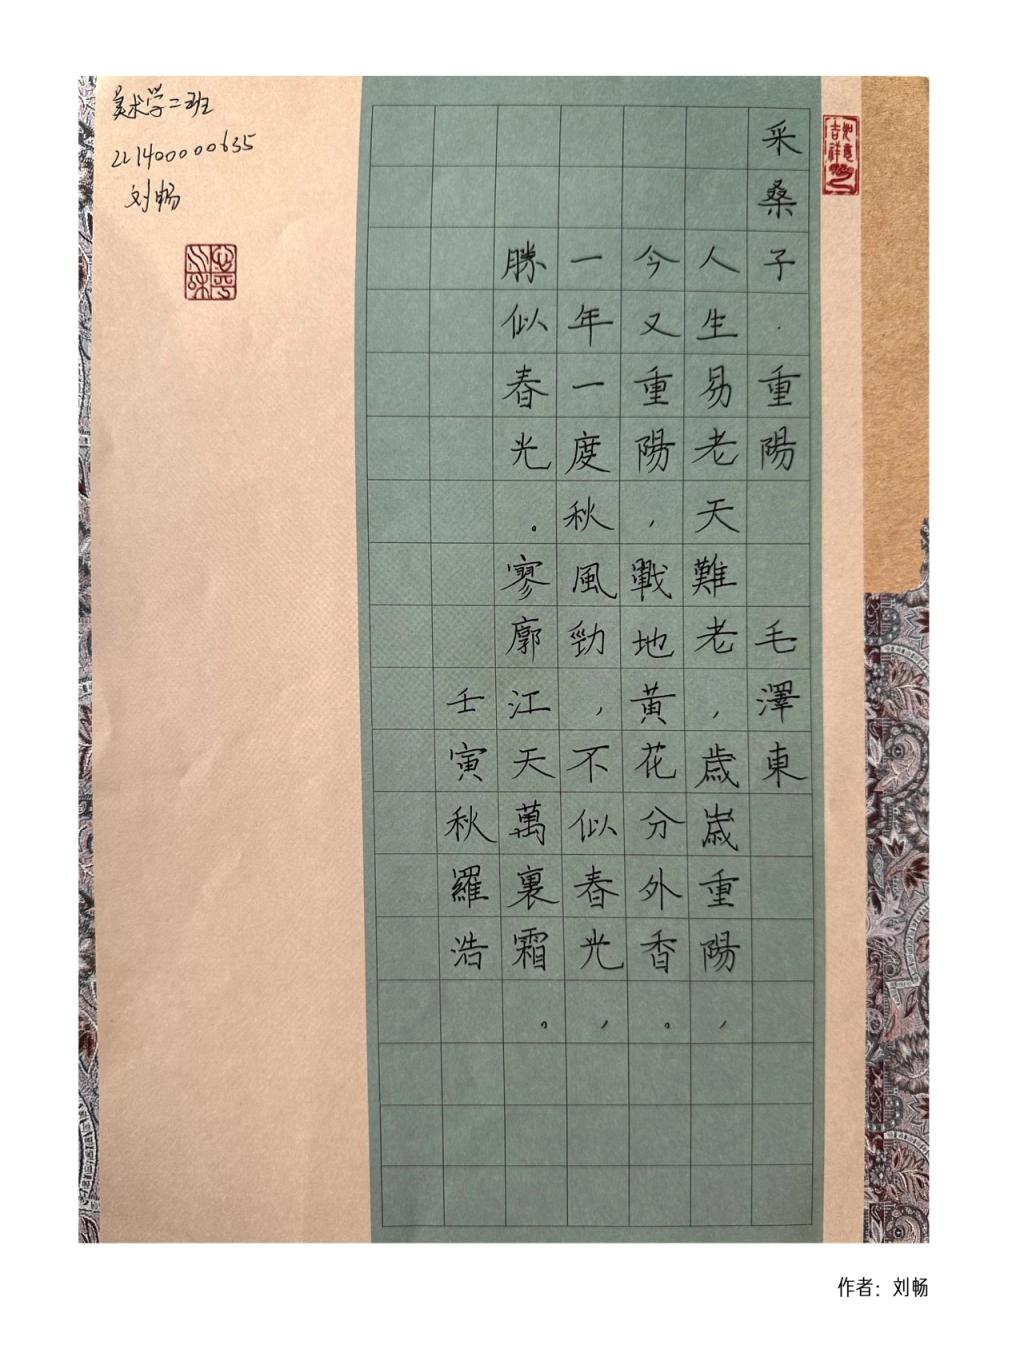 采桑子·重陽 毛澤東
人生易老天難老,歲歲重陽,
今又重陽,戰地黃花分外香。
一年一度秋風勁,不似春光,
勝似春光。寥廓江天萬裏霜。
壬寅秋羅浩
美术学二班
221400000635
刘畅
作者：刘畅